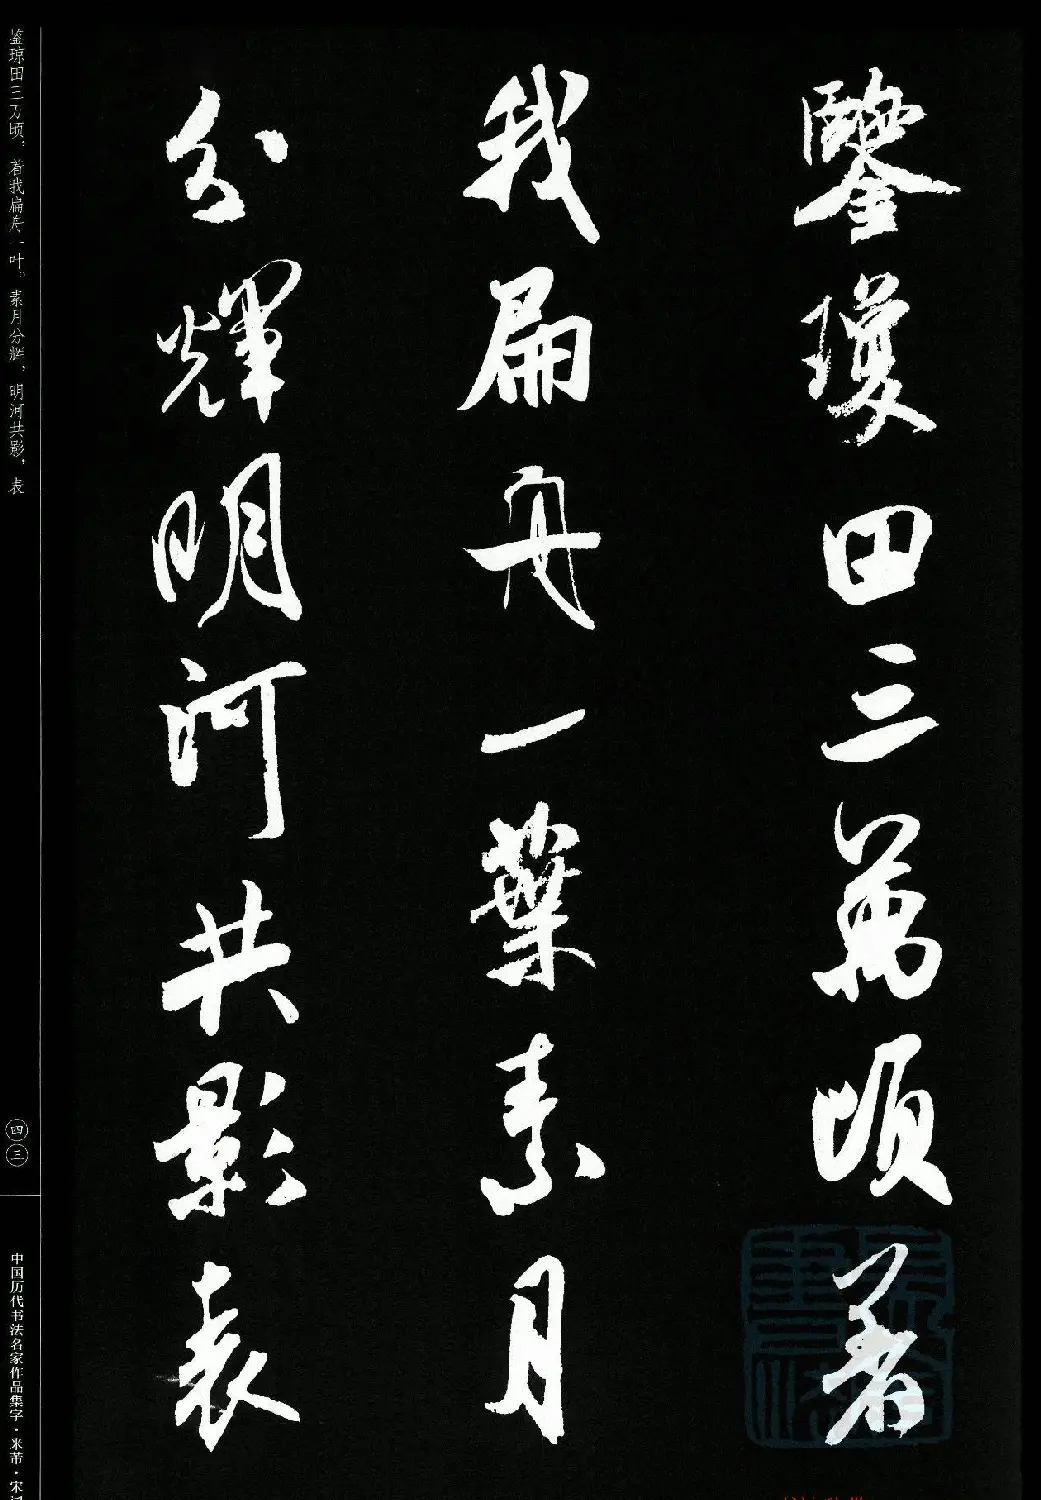 鑒瓊田三萬頃著
我扁舟一葉素月
分輝明河共影表
鉴琼田三万顷，著我扁舟一叶。素月分辉，明河共影，表
四三
中国历代书法名家作品集字·米芾·宋词